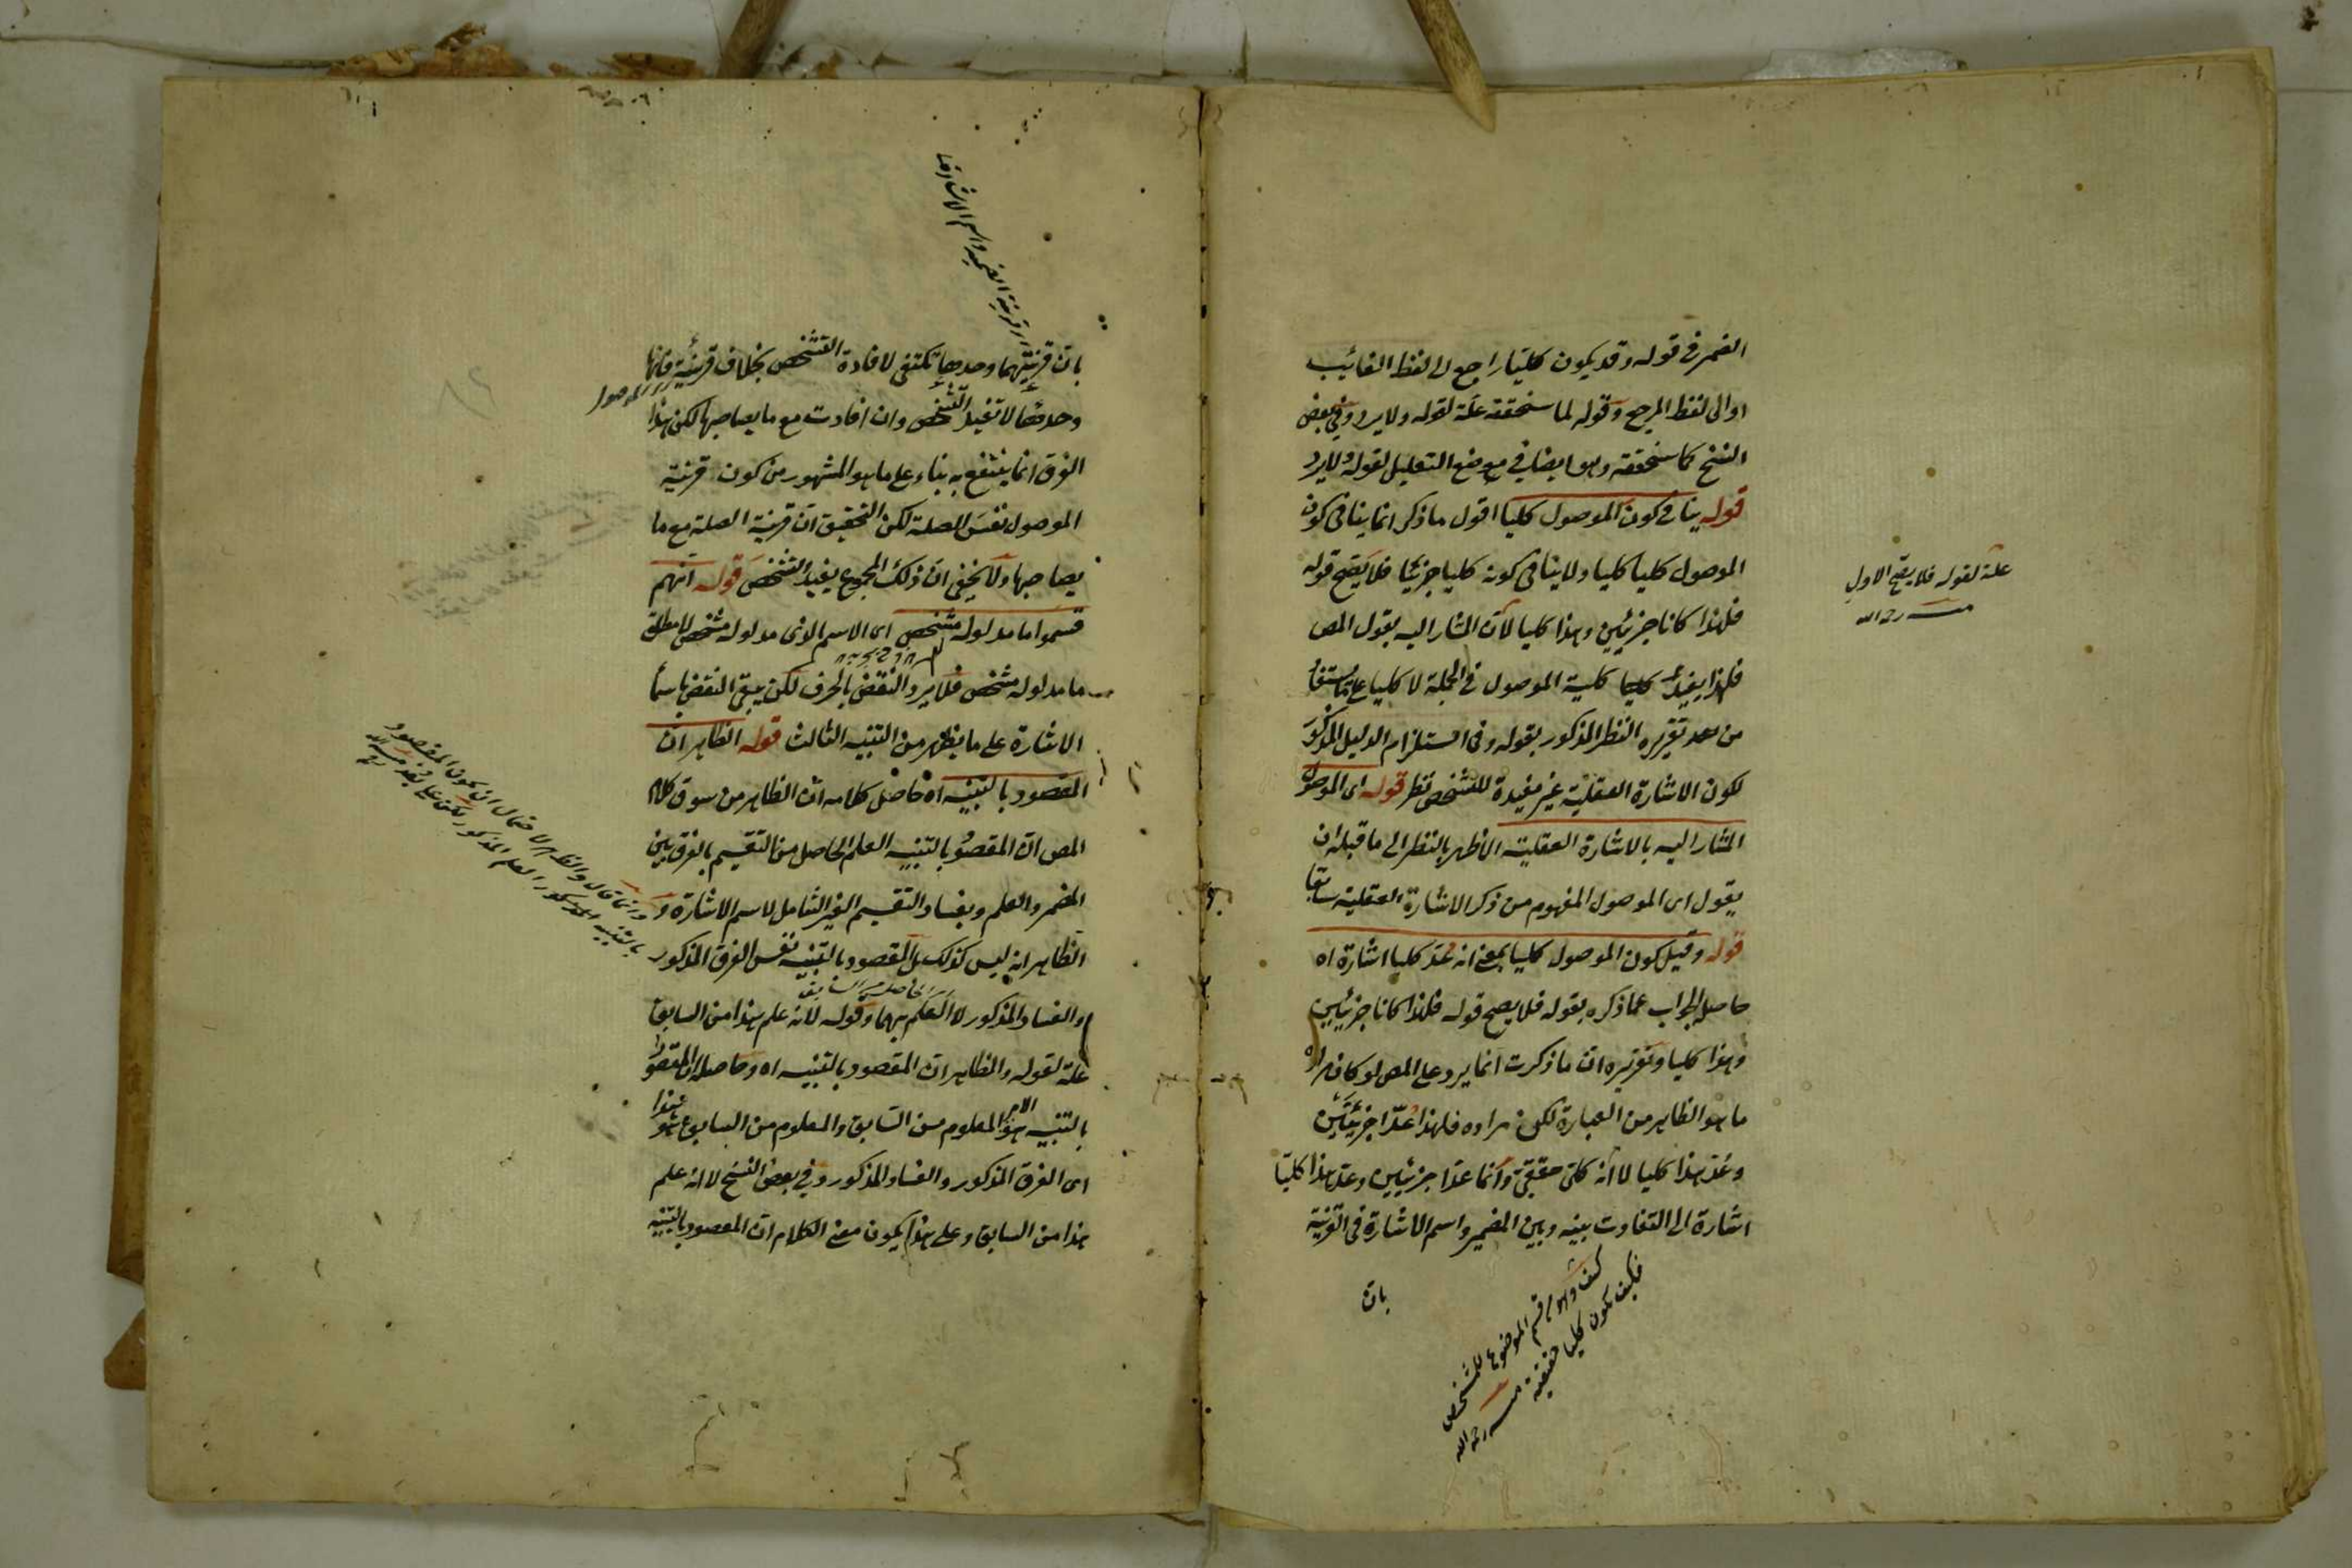 الضمير في قوله وقد يكون كليا راجع الى لفظ الغائب
او الى لفظ المرجع وقوله لما سنحققه علة لقوله ولا يرد وفي بعض
النسخ كما سنحققه وهو ايضا في موضع التعليل لقوله ولا يرد
قوله ينافي كون الموصول كليا اقول ما ذكر انما ينافي كون
الموصول كليا كليا ولا ينافي كونه كليا جزئيا فلا يصح قوله
فلهذا كانا جزئيين وهذا كليا لان المشار اليه بقول المص
فلهذا يفيد كلية الموصول في الجملة لا كليا على ما يستفاد
من بعد تقريره النظر المذكور بقوله وفي استلزام الدليل المذكور
لكون الاشارة العقلية غير مفيدة للتشخص نظر قوله اى الموصول
المشار اليه بالاشارة العقلية الاظهر بالنظر الى ما قبله ان
يقول اى الموصول المفهوم من ذكر الاشارة العقلية سابقا
قوله وقيل كون الموصول كليا بمعنى انه عد كليا اشارة اه
حاصله الجواب عما ذكره بقوله فلا يصح قوله فلهذا كانا جزئيين
وهذا كليا وتقريره ان ما ذكرت انما يرد على المص لو كان مراده
ما هو الظاهر من العبارة لكن مراده فلهذا عدا جزئيين
وعد هذا كليا لا انه كلى حقيقى وانما عدا جزئيين وعد هذا كليا
اشارة الى التفاوت بينه وبين المضمر واسم الاشارة في القرينة
بان
علة لقوله فلا يصح الاول
منه رحمه الله
كيف وهو من قسم الموضوع للمشخص
فكيف يكون كليا حقيقة منه رحمه الله
اى قرينة الضمير واسم الاشارة
بان قرينتهما وحدها تكتفي لافادة التشخص بخلاف قرينة فانها
الموصول
وحدها لا تفيد التشخص وان افادت مع ما يصاحبها لكن هذا
الفرق انما ينتفع به بناء على ما هو المشهور من كون قرينة
الموصول نفس الصلة لكن التحقيق ان قرينة الصلة مع ما
يصاحبها ولا يخفى ان ذلك المجموع يفيد التشخص قوله انهم
قسموا ما مدلوله مشخص اى الاسم الذى مدلوله مشخص لا مطلق
ما مدلوله مشخص فلا يرد النقض بالحرف لكن يبقى النقض باسماء
الاشارة على ما يظهر من التنبيه الثالث قوله الظاهر ان
المقصود بالتنبيه اه حاصل كلامه ان الظاهر من سوق كلام
المص ان المقصود بالتنبيه العلم الحاصل من التقسيم بالفرق بين
المضمر والعلم وبفساد التقسيم الغير الشامل لاسم الاشارة و
الظاهر انه ليس كذلك بل المقصود بالتنبيه نفس الفرق المذكور
الحاصل من السابق
والفساد المذكور لا العلم بهما وقوله لانه علم هذا من السابق
علة لقوله والظاهر ان المقصود بالتنبيه اه وحاصله ان المقصود
بالتنبيه هو الامر المعلوم من السابق والمعلوم من السابق هو هذا
اى الفرق المذكور والفساد المذكور وفي بعض النسخ لا انه علم
هذا من السابق وعلى هذا يكون معنى الكلام ان المقصود بالتنبيه
وانما قال والظاهر لاحتمال ان يكون المقصود
بالتنبيه المذكور العلم المذكور